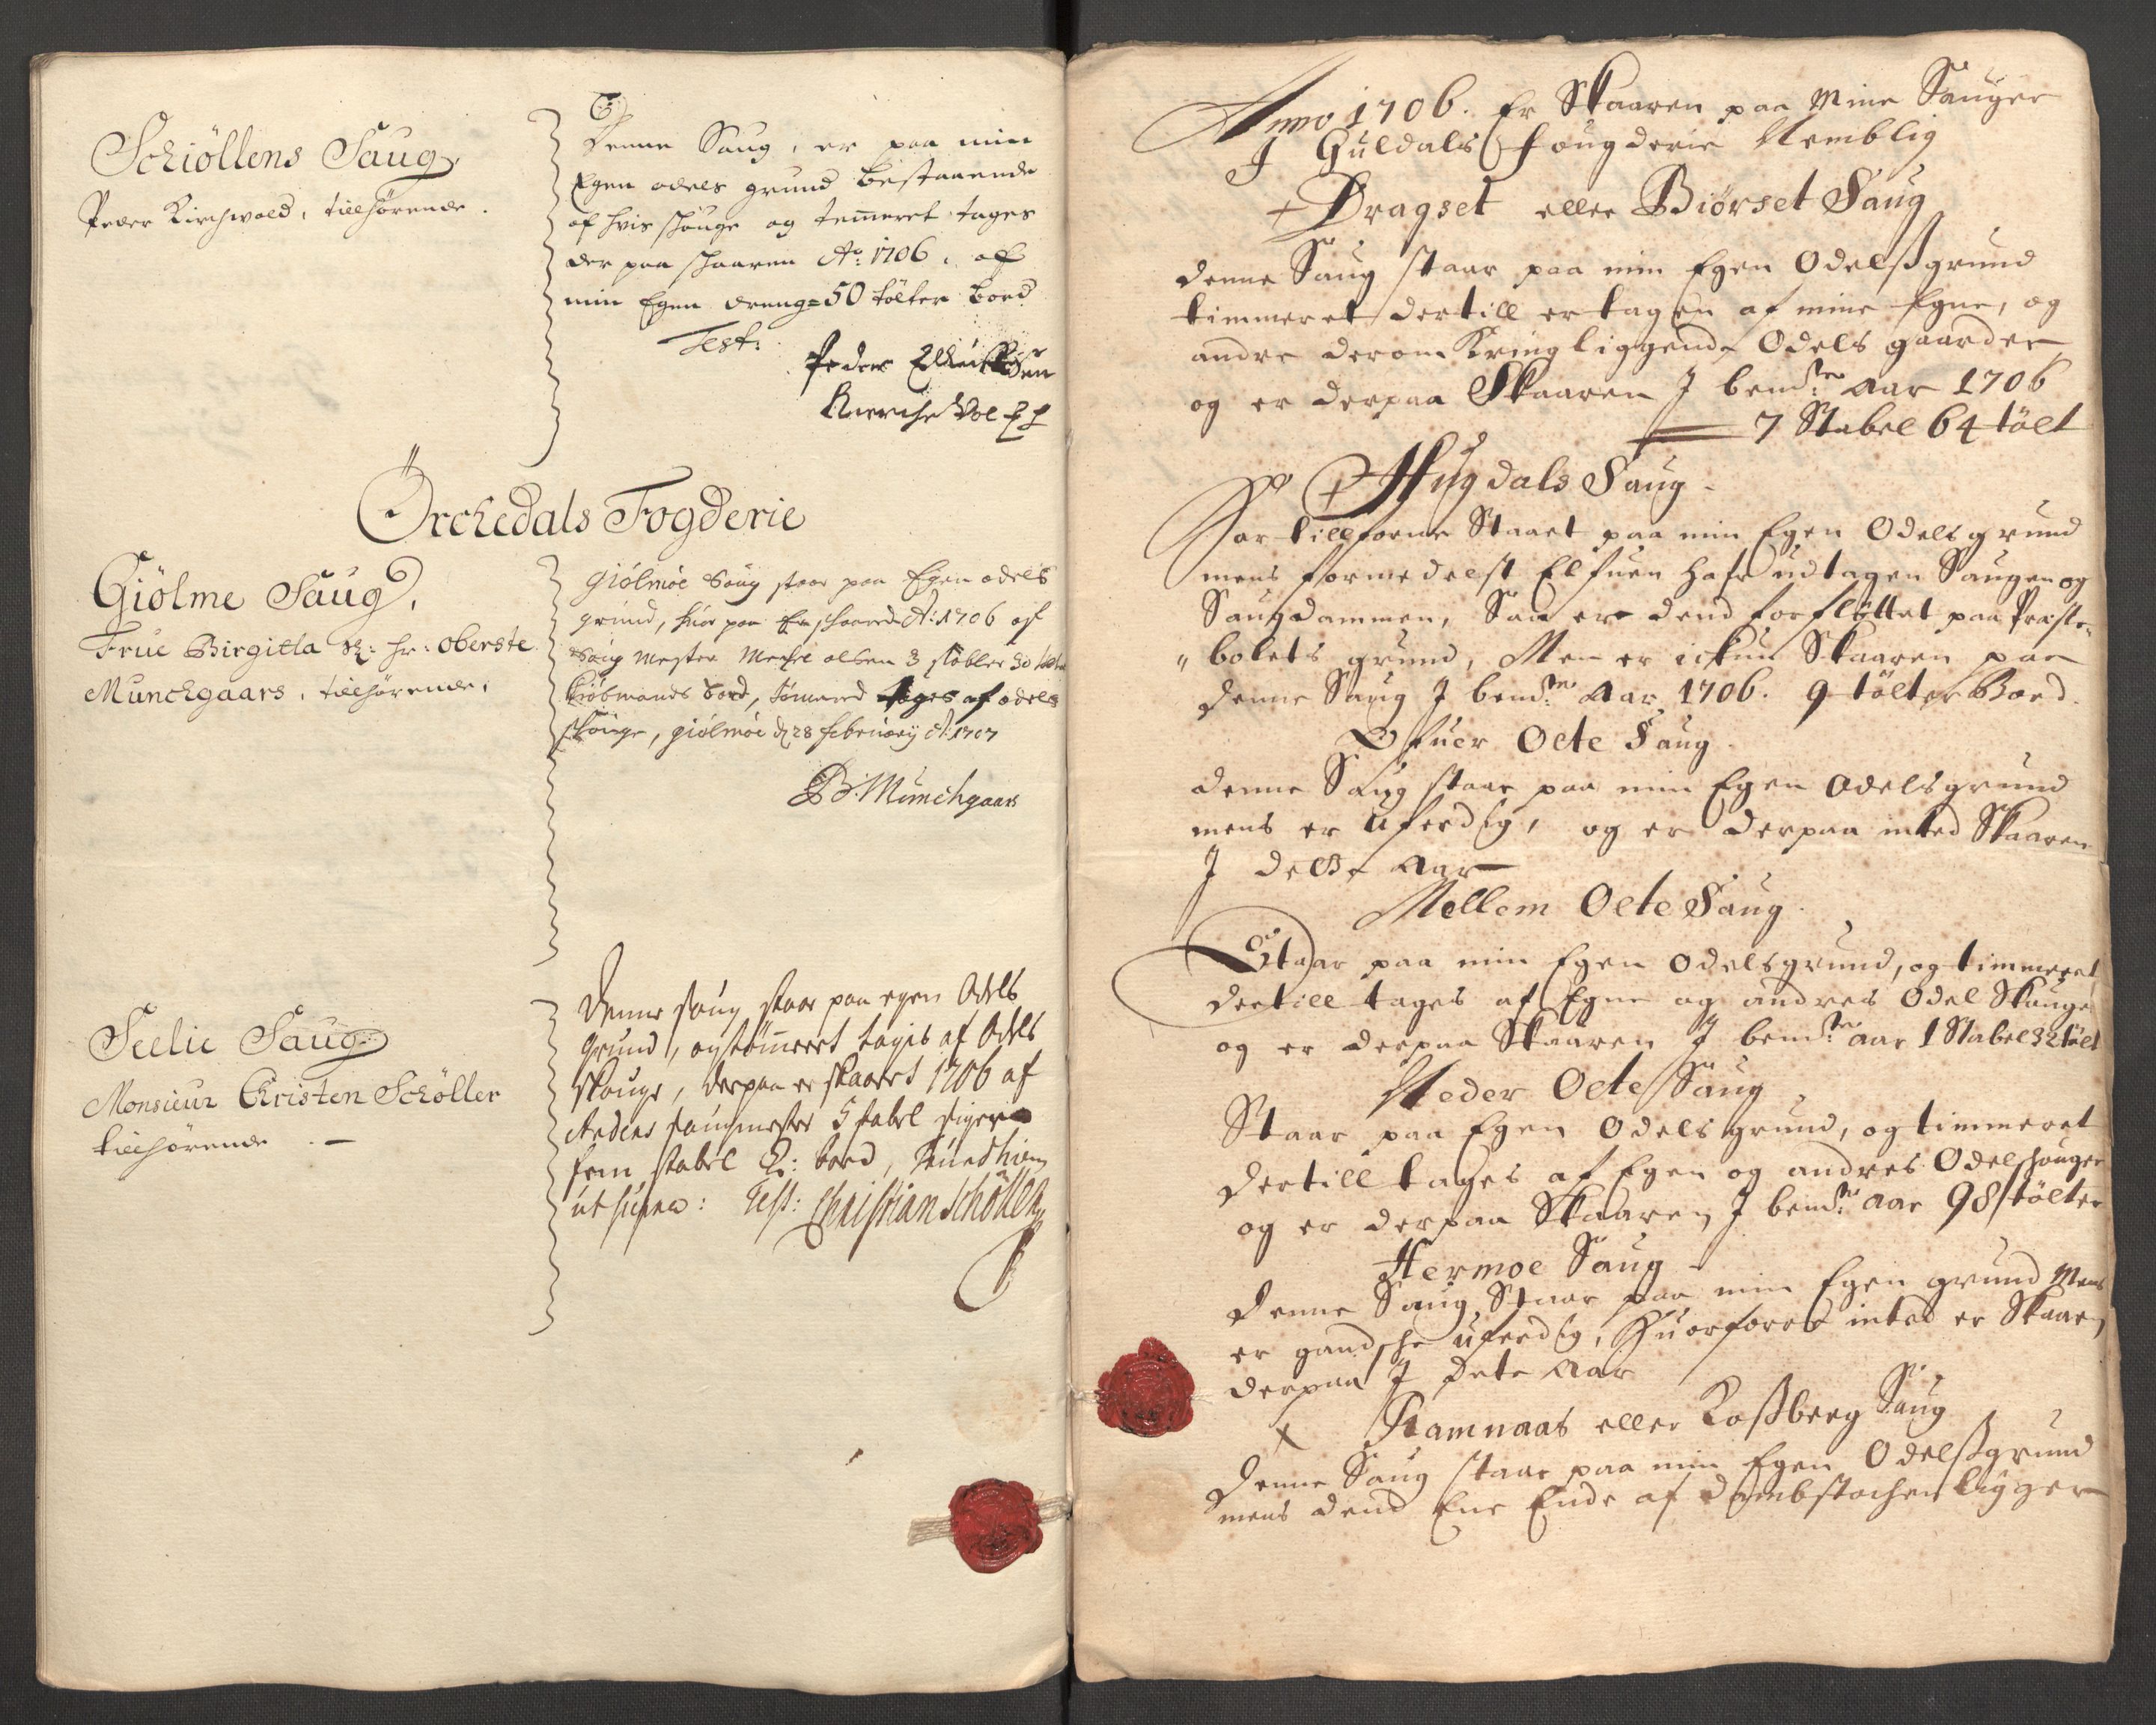 Schiöllens Saug,
Peder Kirchwold, tilhørende.
Denne Saug, er paa min
Egen odels grund bestaaende
af hvis schouge og temmeret tages
der paa schaaren Ao: 1706, af
min Egen dreng= 50 tölter bord
Test:
Peder
Orchedals Fogderie
Giölme Saug,
Frue Birgitta Sl: hr: Oberste
Munchgaars, tilhørende,
Giölmöe Saug staar paa Egen odels
grund, huor paa Er schaared Ao: 1706 af
Saug Mester olsen 3 stabler 30 tølter
Kiöbmands bord, tömered tages af odels
skouge, giölmöe d 28 february Ao 1707
B. Munchgaars
Seelie Saug
Monsieur Christen Schöller
tilhørende . —
Denne saug staar paa egen Odels
grund, og tömmeret tagis af Odels
skouge, derpaa er skaaret 1706 af
Anders saugmester 5 stabel siger
fem stabel bord,
ut supra: Test: Christian Schöller
Anno 1706. Er Skaaren paa Mine Sauger
J Guldals fougderie Nemblig
+ Dragset eller Biörset Saug
denne Saug staar paa min Egen Odelsgrund
timmeret dertill er tagen af mine Egne, og
andre derom Kringliggende Odels gaarder
og er derpaa Skaaren J bemte: Aar 1706
7 Stabel 64 tölt
+ Hugdals Saug -
Har tillforne Staaet paa min Egen Odelsgrund
mens formedelst Elfuen hafr udtagen Saugen og
Saugdammen, Saa er dend forflöttet paa Præste
"bolets grund, Men er ickun Skaaren paa
denne Saug J bemte: Aar 1706. 9 tölter Bord.
Ofuer Oete Saug.
denne Saug staar paa min Egen Odelsgrund
mens er uferdig, og er derpaa inted Skaaren
J dette Aar
Mellem Oete Saug.
Staar paa min Egen Odelsgrund, og timmeret
dertill tages af Egne og andres Odel Skouge
og er derpaa Skaaren J bemte: Aar 1 Stabel 32 tölt
Neder Oete Saug
Staar paa Egen Odelsgrund, og timmeret
dertill tages af Egen og andres Odelskouger
og er derpaa Skaaren J bemte: Aar 98 tölter
Hermoe Saug -
Denne Saug Staar paa min Egen grund Mens
er gandsche uferdig, Huorforre inted er Skaaren
derpaa J Dete Aar
x Hamnaas eller Kossberg Saug
Denne Saug staar paa min Egen Odelsgrund
mens dend Ene Ende af dambstochen ligger